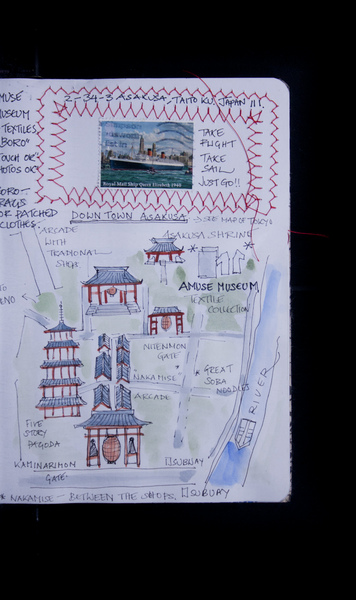 2-34-3 ASAKUSA, TAITO KU, JAPAN 111.
MUSE
MUSEUM
TEXTILES
"BORO"
TOUCH OK
PHOTOS OK
BORO-
RAGS
OR PATCHED
CLOTHES.
Royal Mail Ship Queen Elizabeth 1948
TAKE
FLIGHT
TAKE
SAIL
JUST GO!!
DOWN TOWN ASAKUSA
MAP OF TOKYO
ARCADE
WITH
TRADIONAL
SHOPS
ASAKUSA SHRINE
AMUSE MUSEUM
TEXTILE
COLLECTION
NITENMON
GATE
"NAKAMISE"
ARCADE
* GREAT
SOBA
NOODLES
RIVER
FIVE
STORY
PAGODA
KAMINARIMON
GATE
SUBWAY
* NAKAMISE - BETWEEN THE SHOPS.
SUBWAY